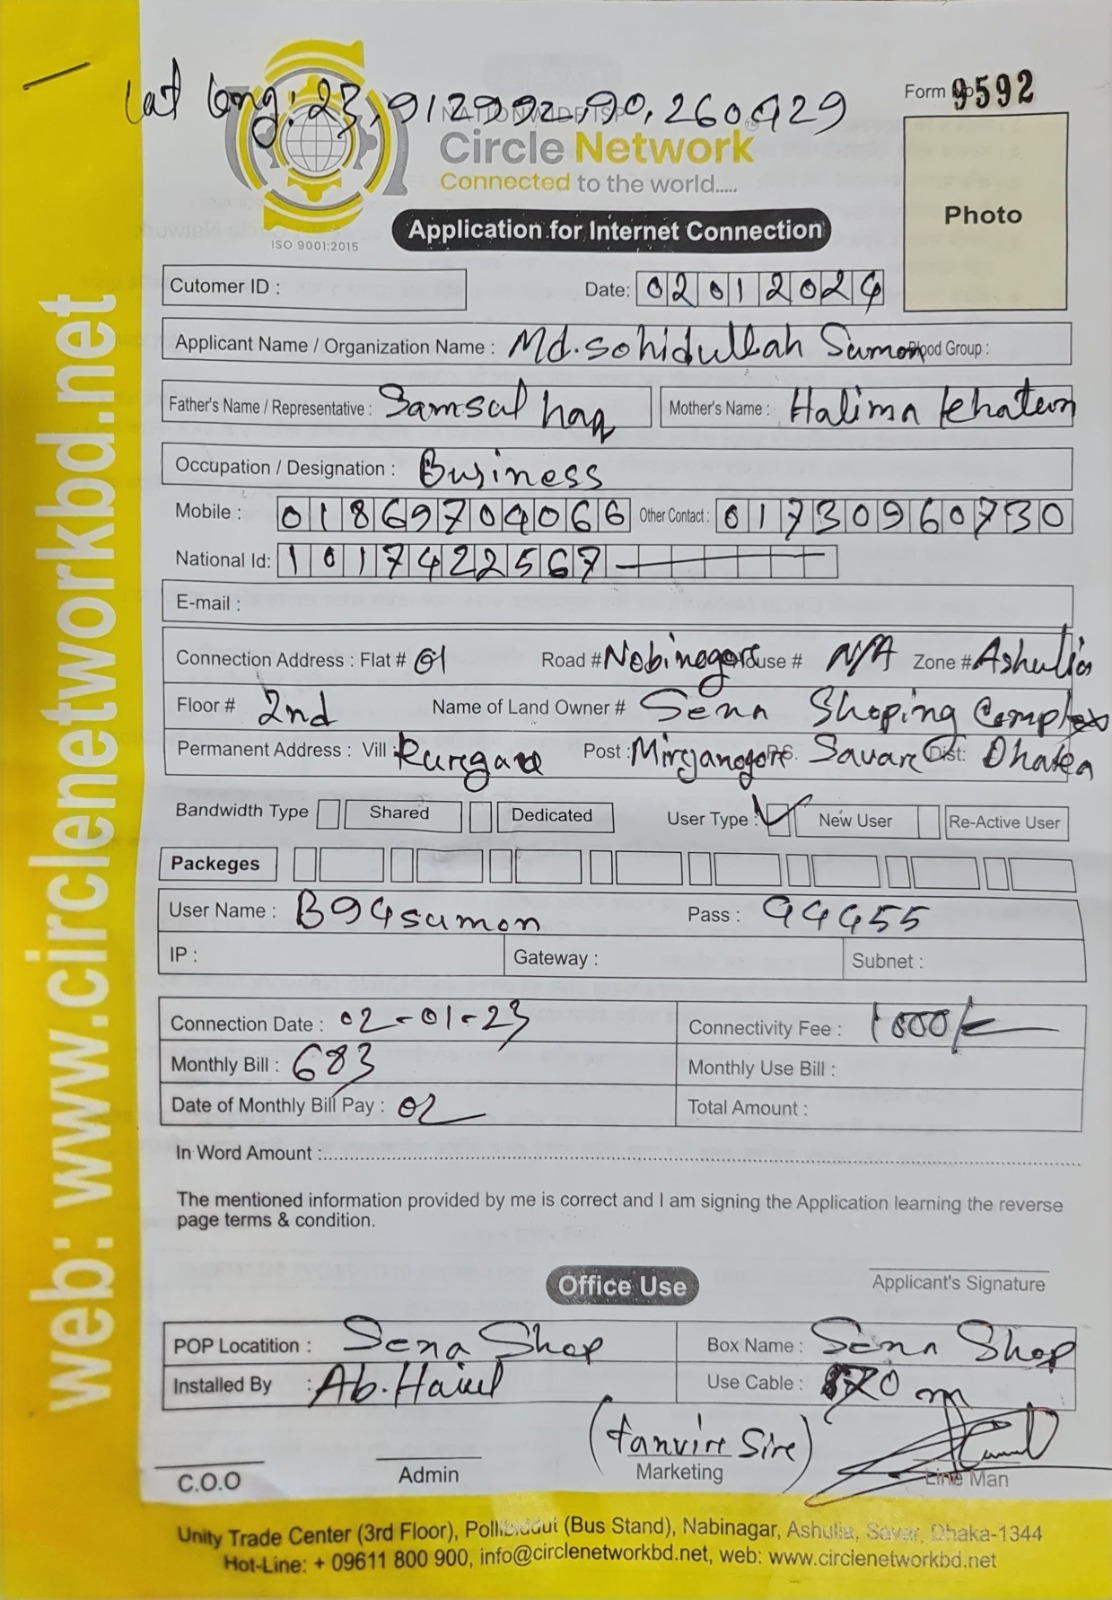 Lat Long: 23.912992, 90.260929
Form No 9592
NATIONWIDE ISP
Circle Network
Connected to the world.....
ISO 9001:2015
Application for Internet Connection
Photo
Cutomer ID :
Date: 02012024
Applicant Name / Organization Name : Md. Sohidullah Sumon Blood Group :
Father's Name / Representative : Samsul haq Mother's Name : Halima Khatun
Occupation / Designation : Business
Mobile : 01869704066 Other Contact : 01730960730
National Id: 1017422567
E-mail :
Connection Address : Flat # 01 Road # Nobinogor House # N/A Zone # Ashulia
Floor # 2nd Name of Land Owner # Sena Shoping Complex
Permanent Address : Vill : Post : Mirjanogor P.S. Savar Dist: Dhaka
Bandwidth Type Shared Dedicated User Type : New User Re-Active User
Packeges
User Name : B94sumon Pass : 94455
IP : Gateway : Subnet :
Connection Date : 02-01-23 Connectivity Fee : 1000/-
Monthly Bill : 683 Monthly Use Bill :
Date of Monthly Bill Pay : 02 Total Amount :
In Word Amount :
The mentioned information provided by me is correct and I am signing the Application learning the reverse
page terms & condition.
Office Use
Applicant's Signature
POP Locatition : Sena Shop Box Name : Sena Shop
Installed By : Ab. Use Cable : 70 m
(tanvir Sir)
C.O.O Admin Marketing Line Man
Unity Trade Center (3rd Floor), Pollibiddut (Bus Stand), Nabinagar, Ashulia, Savar, Dhaka-1344
Hot-Line: + 09611 800 900, info@circlenetworkbd.net, web: www.circlenetworkbd.net
web: www.circlenetworkbd.net